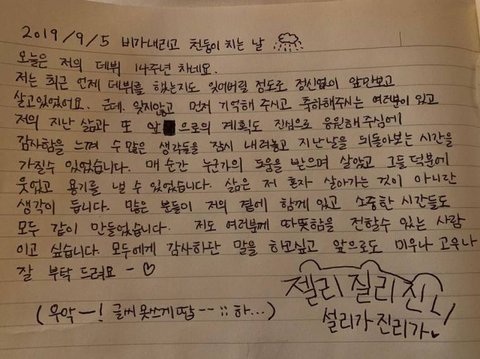 2019/9/5 비가내리고 천둥이 치는 날
오늘은 저의 데뷔 14주년 차네요.
저는 최근 언제 데뷔를 했는지도 잊어버릴 정도로 정신없이 앞만보고
살고있었어요. 근데, 잊지않고 먼저 기억해 주시고 축하해주시는 여러분이 있고
저의 지난 삶과 또 앞으로의 계획도 진심으로 응원해주심에
감사함을 느껴 수 많은 생각들을 잠시 내려놓고 지난날을 되돌아보는 시간을
가질수 있었습니다. 매 순간 누군가의 도움을 받으며 살았고 그들 덕분에
웃었고 용기를 낼 수 있었습니다. 삶은 저 혼자 살아가는 것이 아니란
생각이 듭니다. 많은 분들이 저의 곁에 함께 있고 소중한 시간들도
모두 같이 만들었습니다. 저도 여러분께 따뜻함을 전할수 있는 사람
이고 싶습니다. 모두에게 감사하단 말을 하고싶고 앞으로도 미우나 고우나
잘 부탁 드려요 - ♡
젤리 질리 진리
설리가 진리가♥
(우악-! 글씨 못쓰게땁--;; 하...)